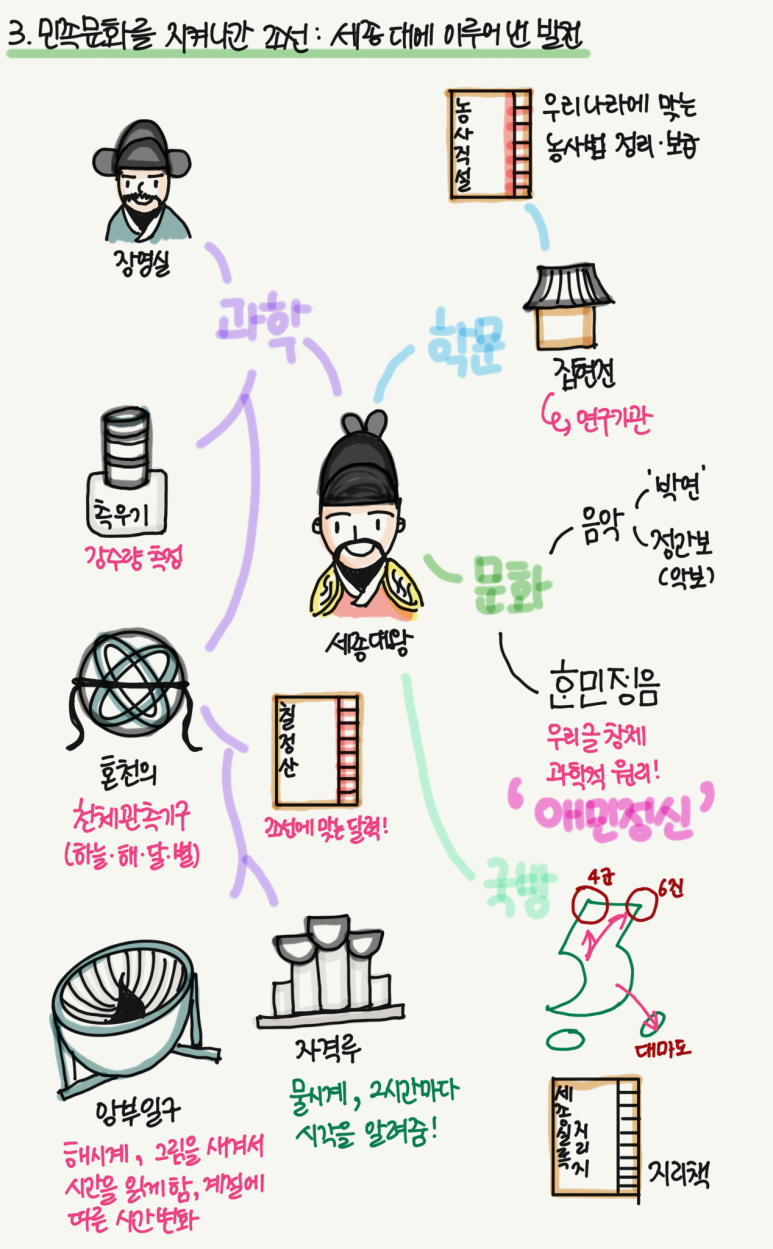 3. 민족문화를 지켜나간 조선 : 세종 대에 이루어 낸 발전
장영실
과학
측우기
강수량 측정
혼천의
천체관측기구
(하늘·해·달·별)
칠정산
조선에 맞는 달력!
앙부일구
해시계, 그림을 새겨서
시간을 읽게함, 계절에
따른 시간변화
자격루
물시계, 2시간마다
시각을 알려줌!
세종대왕
학문
농사직설
우리나라에 맞는
농사법 정리·보급
집현전
연구기관
문화
음악
'박연'
정간보
(악보)
훈민정음
우리글 창제
과학적 원리!
'애민정신'
국방
4군
6진
대마도
세종실록
지리지
지리책